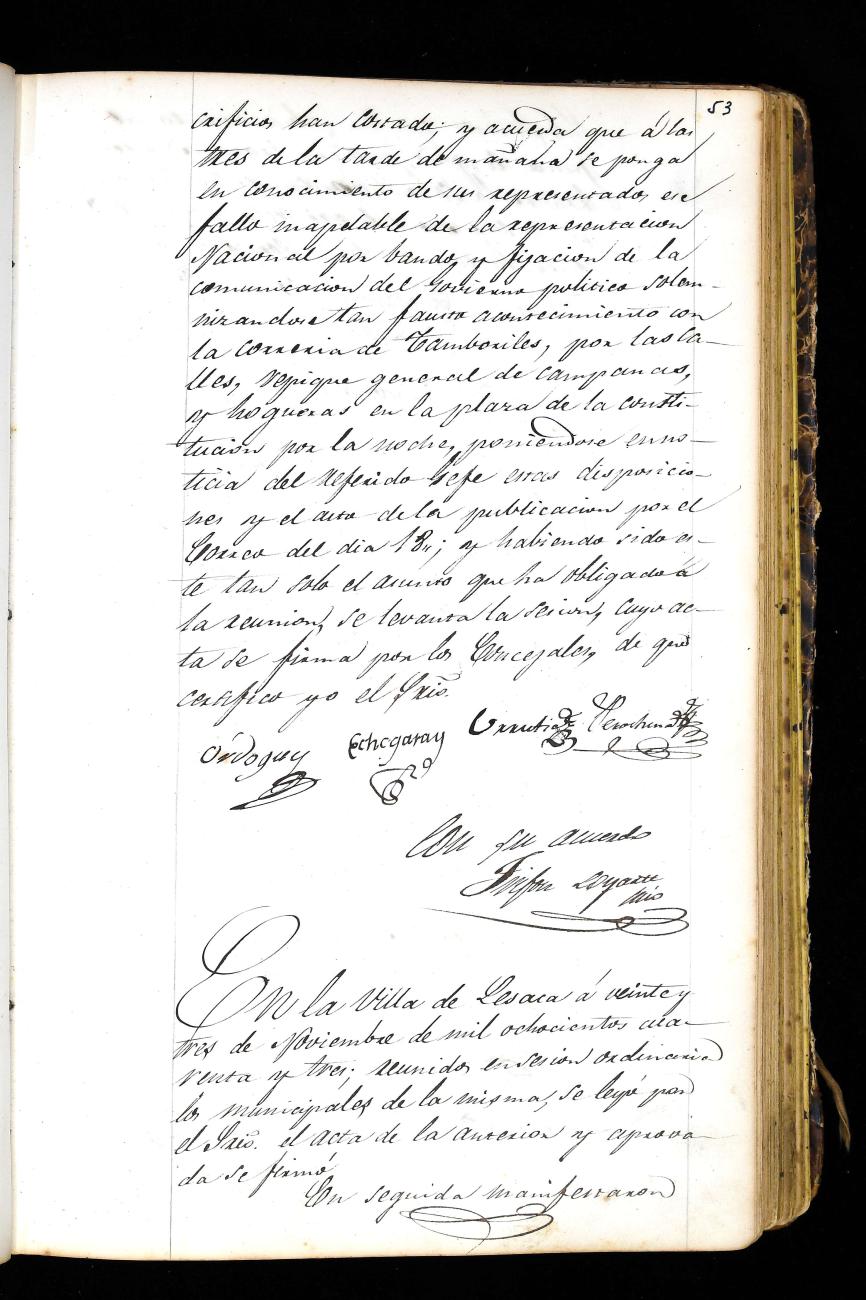 53
crificios han costado; y acuerda que á las
tres de la tarde de mañana se ponga
en conocimiento de sus representados ese
fallo inapelable de la representacion
Nacional por bando, y fijacion de la
comunicacion del Govierno politico solem-
nizandose tan fausto acontecimiento con
la correria de Tamboriles, por las ca-
lles, repique general de campanas,
y hogueras en la plaza de la consti-
tucion por la noche, poniendose en no-
ticia del referido Gefe estas disposicio-
nes y el acto de la publicacion por el
Correo del dia 18,,; y habiendo sido es-
te tan solo el asunto que ha obligado á
la reunion, se levanta la sesion, cuyo ac-
ta se firma por los Concejales, de que
certifico yo el Srio.
Ordoguy Echegaray Urrutia Perochena
Con su acuerdo
Trifon Loyarte
Srio
En la Villa de Lesaca á veinte y
tres de Noviembre de mil ochocientos cua-
renta y tres; reunidos en sesion ordinaria
los municipales de la misma, se leyó por
el Srio. el acta de la anterior y aprova-
da se firmó
En seguida manifestaron